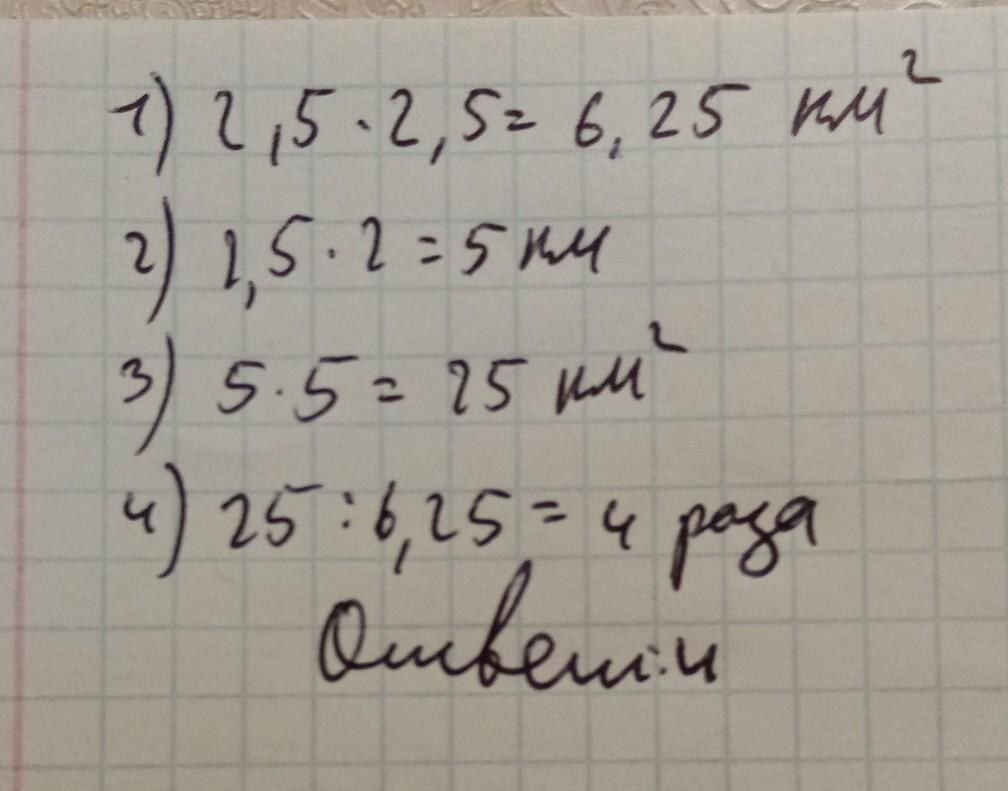 1) 2,5 · 2,5 = 6,25 км²
2) 2,5 · 2 = 5 км
3) 5 · 5 = 25 км²
4) 25 : 6,25 = 4 раза
Ответ: 4